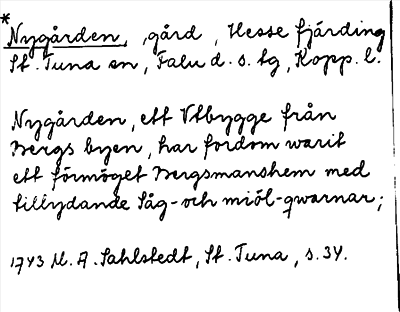 *Nygården, gård, Hesse fjärding
St. Tuna sn, Falu d. s. tg, Kopp. l.
Nygården, ett Utbygge från
Bergs byen, har fordom warit
ett förmöget Bergsmanshem med
tillydande Såg- och miöl-qwarnar;
1743 M. A. Sahlstedt, St. Tuna, s. 34.